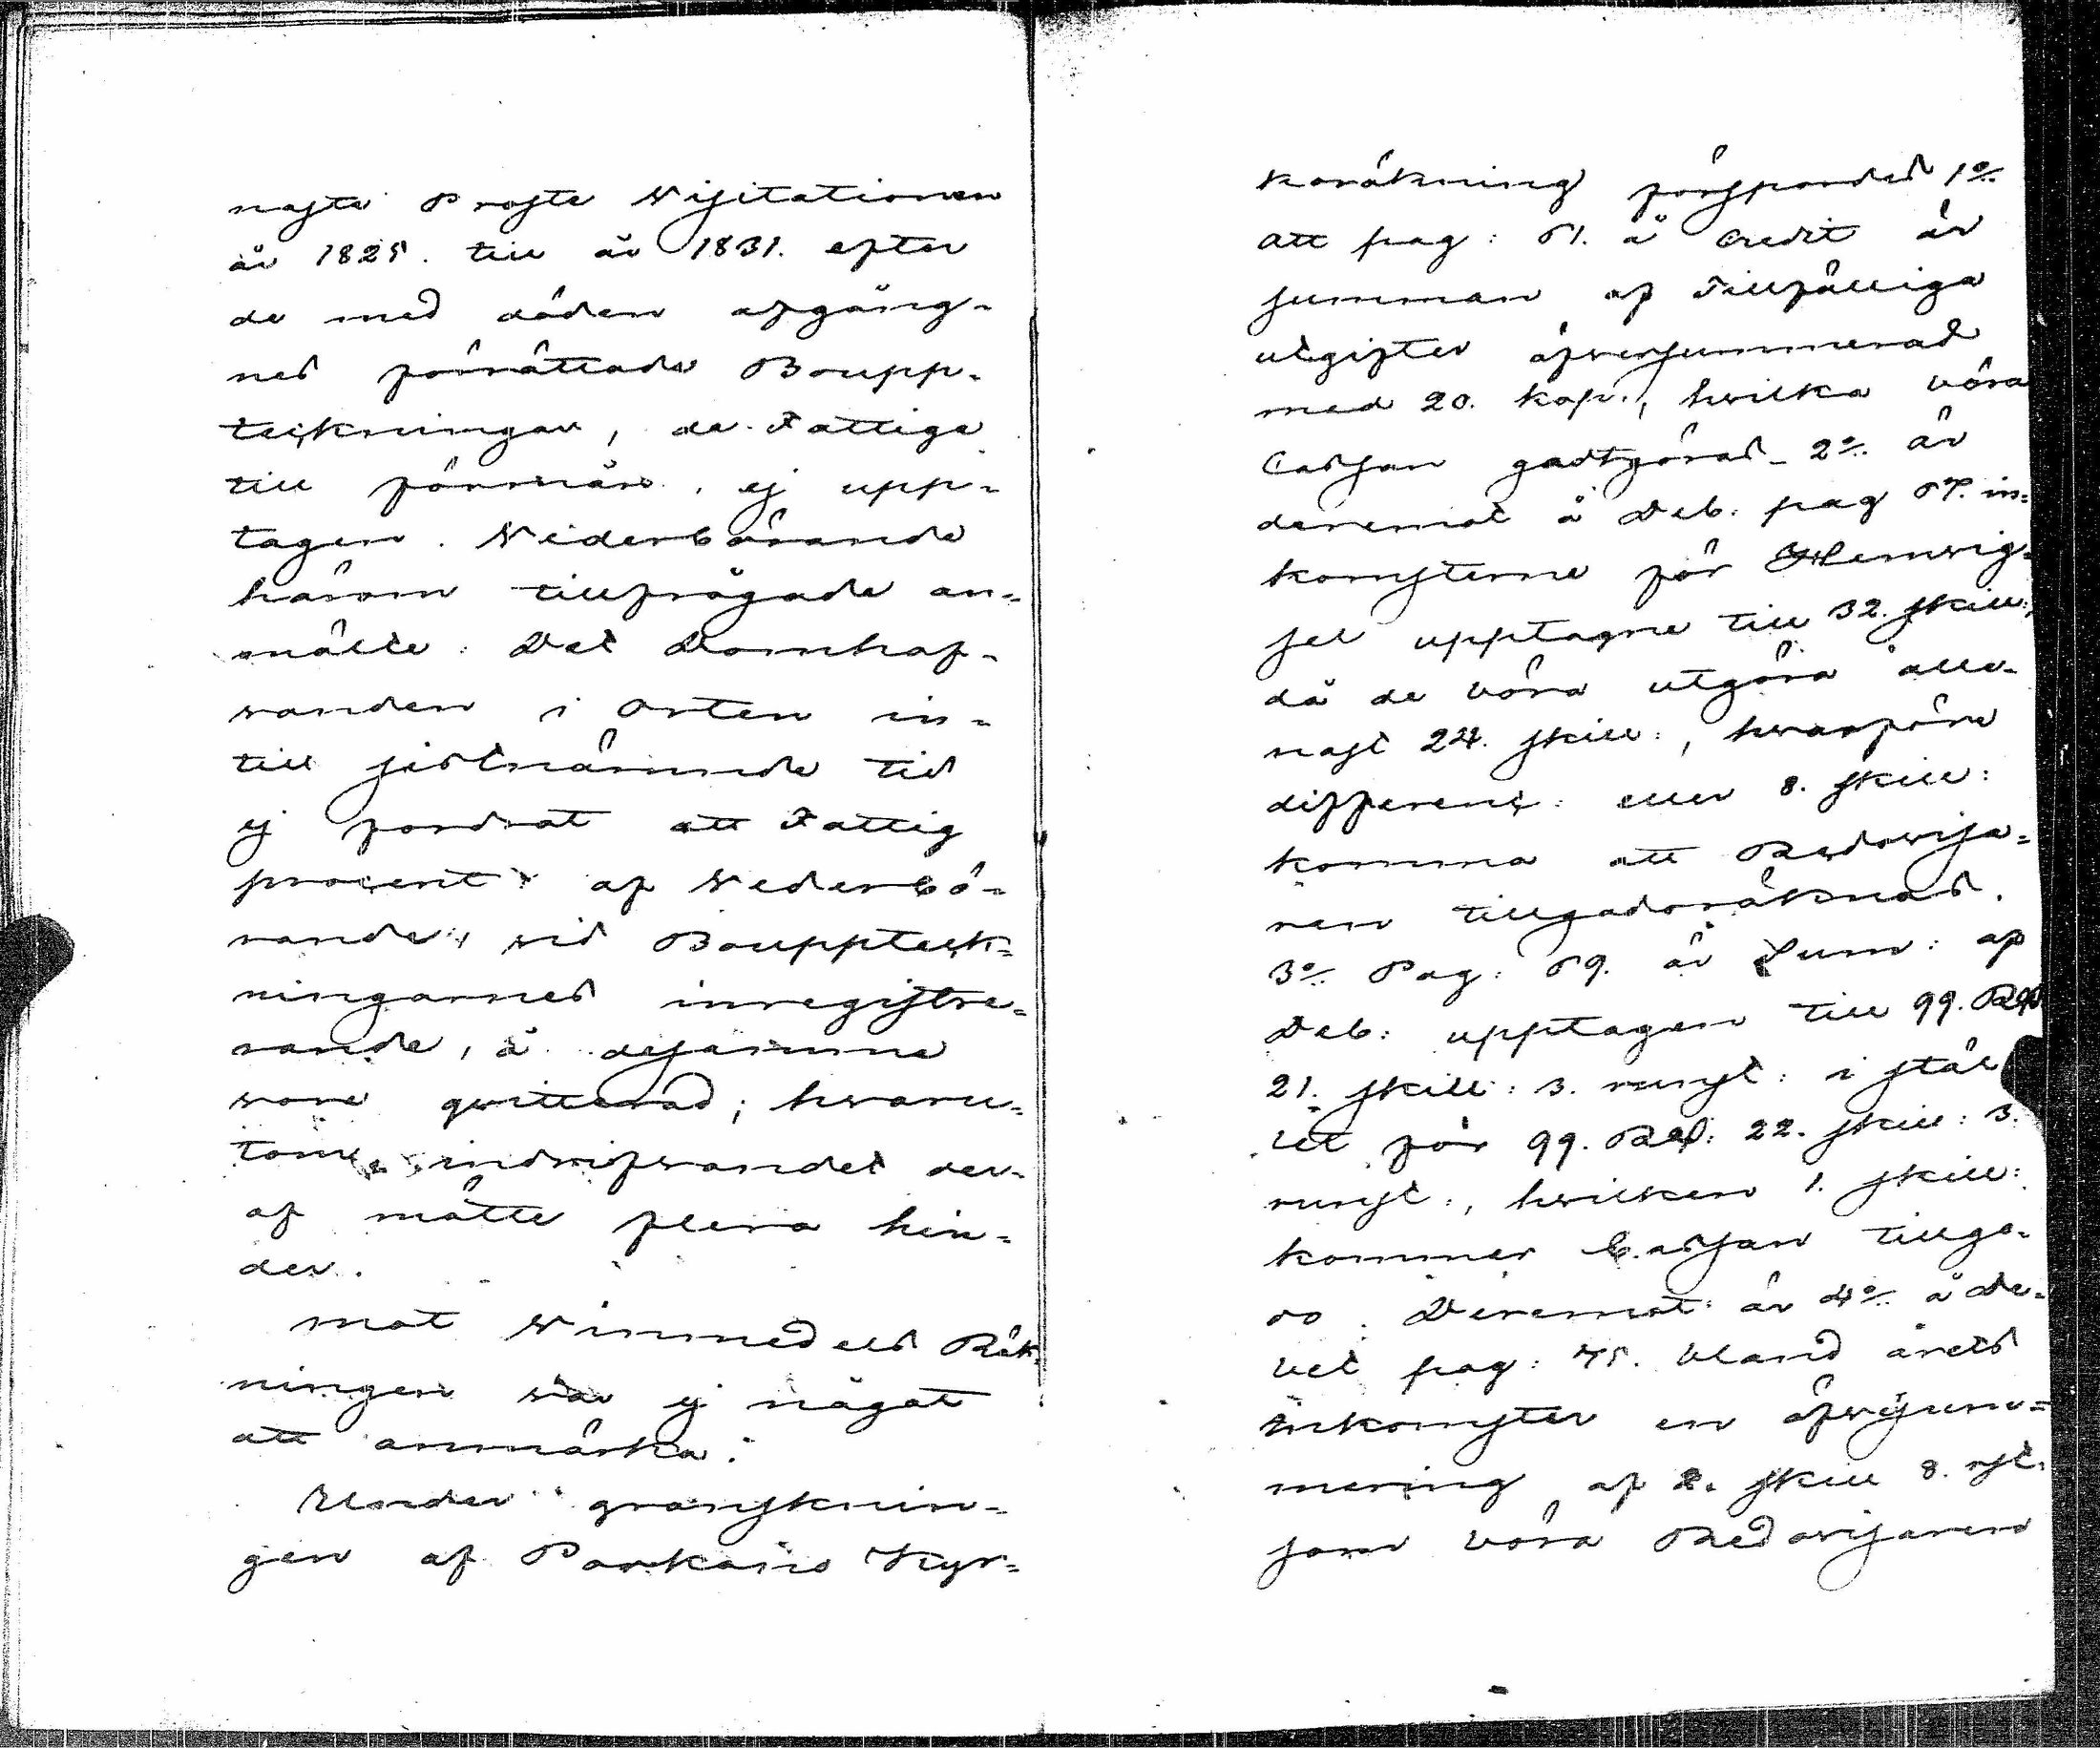 nasta Proste Visitationen
år 1825. till år 1831. efter
de med döden afgång-
nes förrättade Boupp-
teckningar, de Fattige
till förmån, ej upp-
tagen. Vederbörande
härom tillfrågade an-
mälte: Det Domhaf-
vanden i Orten in-
till sistnämnde tid
ej fordrat att Fattig
procent af Vederbö-
rande vid Bouppteck-
ningarnes inregistre-
rande, å desamma
vore qvitterad; hvaru-
tom indrifvandet der-
af mötte flera hin-
der.
Mot Vinmedels Räk-
ningen var ej något
att anmärka.
Under gransknin-
gen af Parkano Kyr-
koräkning försporдes 1o
att pag: 51. å Credit är
summan af Tillfälliga
utgifter öfversummerad
med 20. kop., hvilka böra
Cassan godtgöras_ 2o. är
deremot å Deb. pag 57. in-
komsterne för Hemvig-
sel upptagne till 32. skill:,
då de böra utgöra alle-
nast 24. skill:, hvarföre
differens: eller 8. skill:
komma att Redovisa-
ren tillgodoräknas.
3o Pag: 59. är Sum: af
Deb: upptagen till 99. Rd
21. skill: 3. runst: i stäl
let för 99. Rd: 22. skill: 3.
runst:, hvilken 1. skill:
kommer Cassan tillgo-
do. Deremot är 4o å De-
bet pag: 75. bland årets
inkomster en öfversum-
mering af 2. skill 8. rst.
som böra Redovisaren